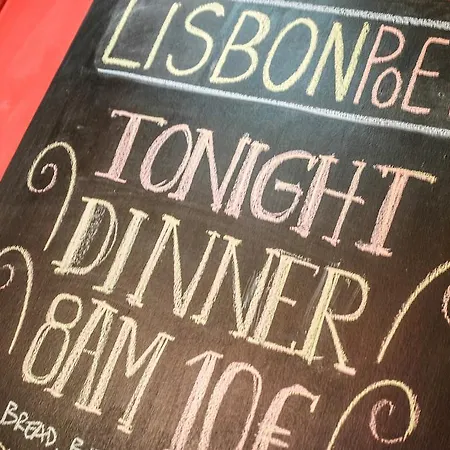 LISBON POE
TONIGHT
DINNER
8AM 10€
BREAD